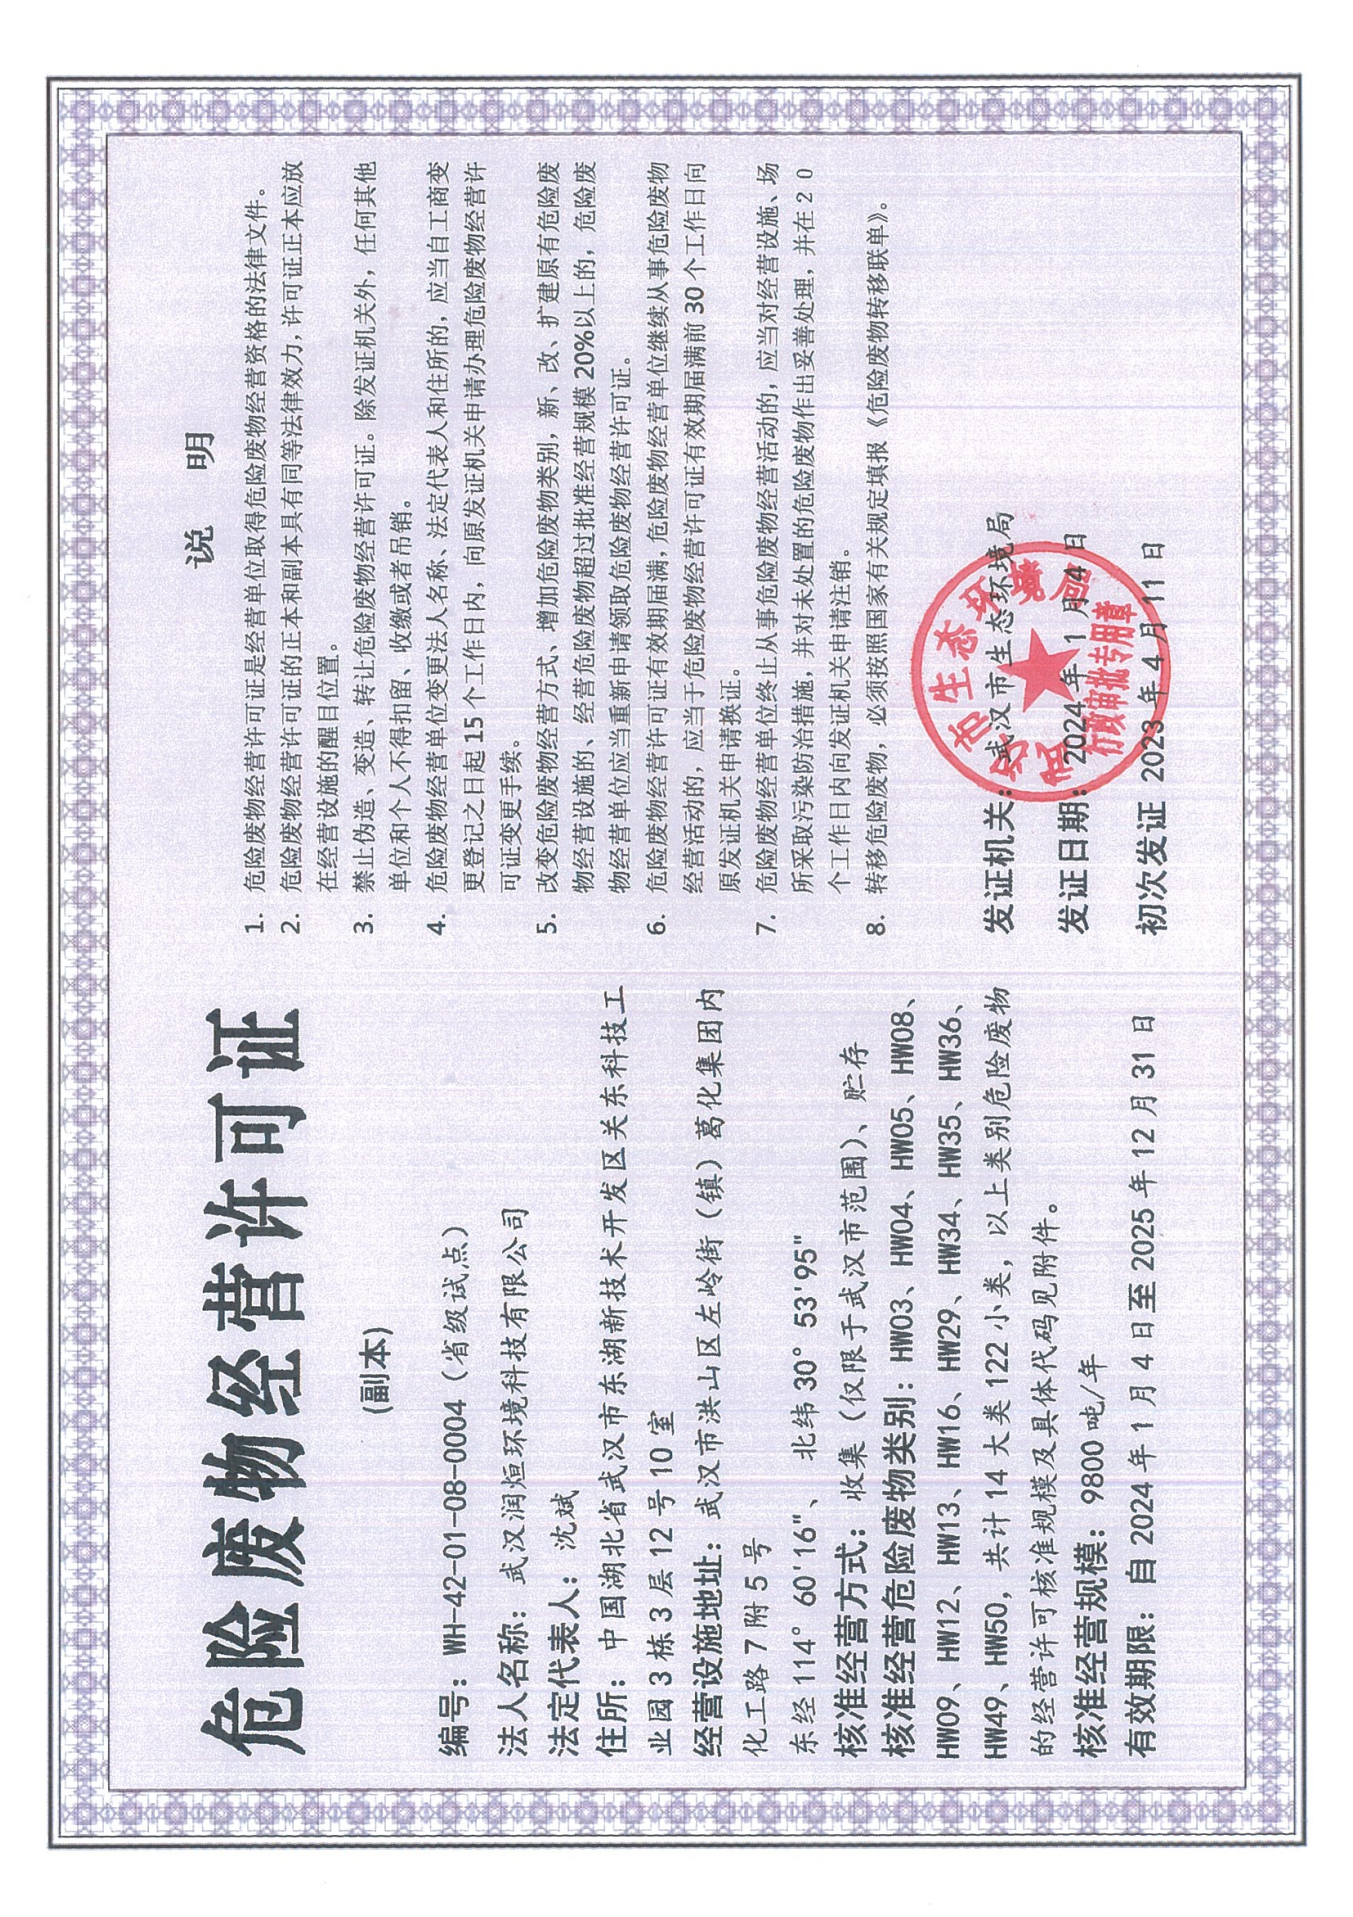 危险废物经营许可证
(副本)
编号：WH-42-01-08-0004（省级试点）
法人名称：武汉润烜环境科技有限公司
法定代表人：沈斌
住所：中国湖北省武汉市东湖新技术开发区关东科技工
业园3栋3层12号10室
经营设施地址：武汉市洪山区左岭街（镇）葛化集团内
化工路7附5号
东经114°60'16"、北纬30°53'95"
核准经营方式：收集（仅限于武汉市范围）、贮存
核准经营危险废物类别：HW03、HW04、HW05、HW08、
HW09、HW12、HW13、HW16、HW29、HW34、HW35、HW36、
HW49、HW50，共计14大类122小类，以上类别危险废物
的经营许可核准规模及具体代码见附件。
核准经营规模：9800吨/年
有效期限：自2024年1月4日至2025年12月31日
说明
1. 危险废物经营许可证是经营单位取得危险废物经营资格的法律文件。
2. 危险废物经营许可证的正本和副本具有同等法律效力，许可证正本应放
在经营设施的醒目位置。
3. 禁止伪造、变造、转让危险废物经营许可证。除发证机关外，任何其他
单位和个人不得扣留、收缴或者吊销。
4. 危险废物经营单位变更法人名称、法定代表人和住所的，应当自工商变
更登记之日起15个工作日内，向原发证机关申请办理危险废物经营许
可证变更手续。
5. 改变危险废物经营方式、增加危险废物类别，新、改、扩建原有危险废
物经营设施的、经营危险废物超过批准经营规模20%以上的，危险废
物经营单位应当重新申请领取危险废物经营许可证。
6. 危险废物经营许可证有效期届满，危险废物经营单位继续从事危险废物
经营活动的，应当于危险废物经营许可证有效期届满前30个工作日向
原发证机关申请换证。
7. 危险废物经营单位终止从事危险废物经营活动的，应当对经营设施、场
所采取污染防治措施，并对未处置的危险废物作出妥善处理，并在20
个工作日内向发证机关申请注销。
8. 转移危险废物，必须按照国家有关规定填报《危险废物转移联单》。
发证机关：武汉市生态环境局
发证日期：2024年1月4日
初次发证 2023年4月11日
武汉市生态环境局
行政审批专用章